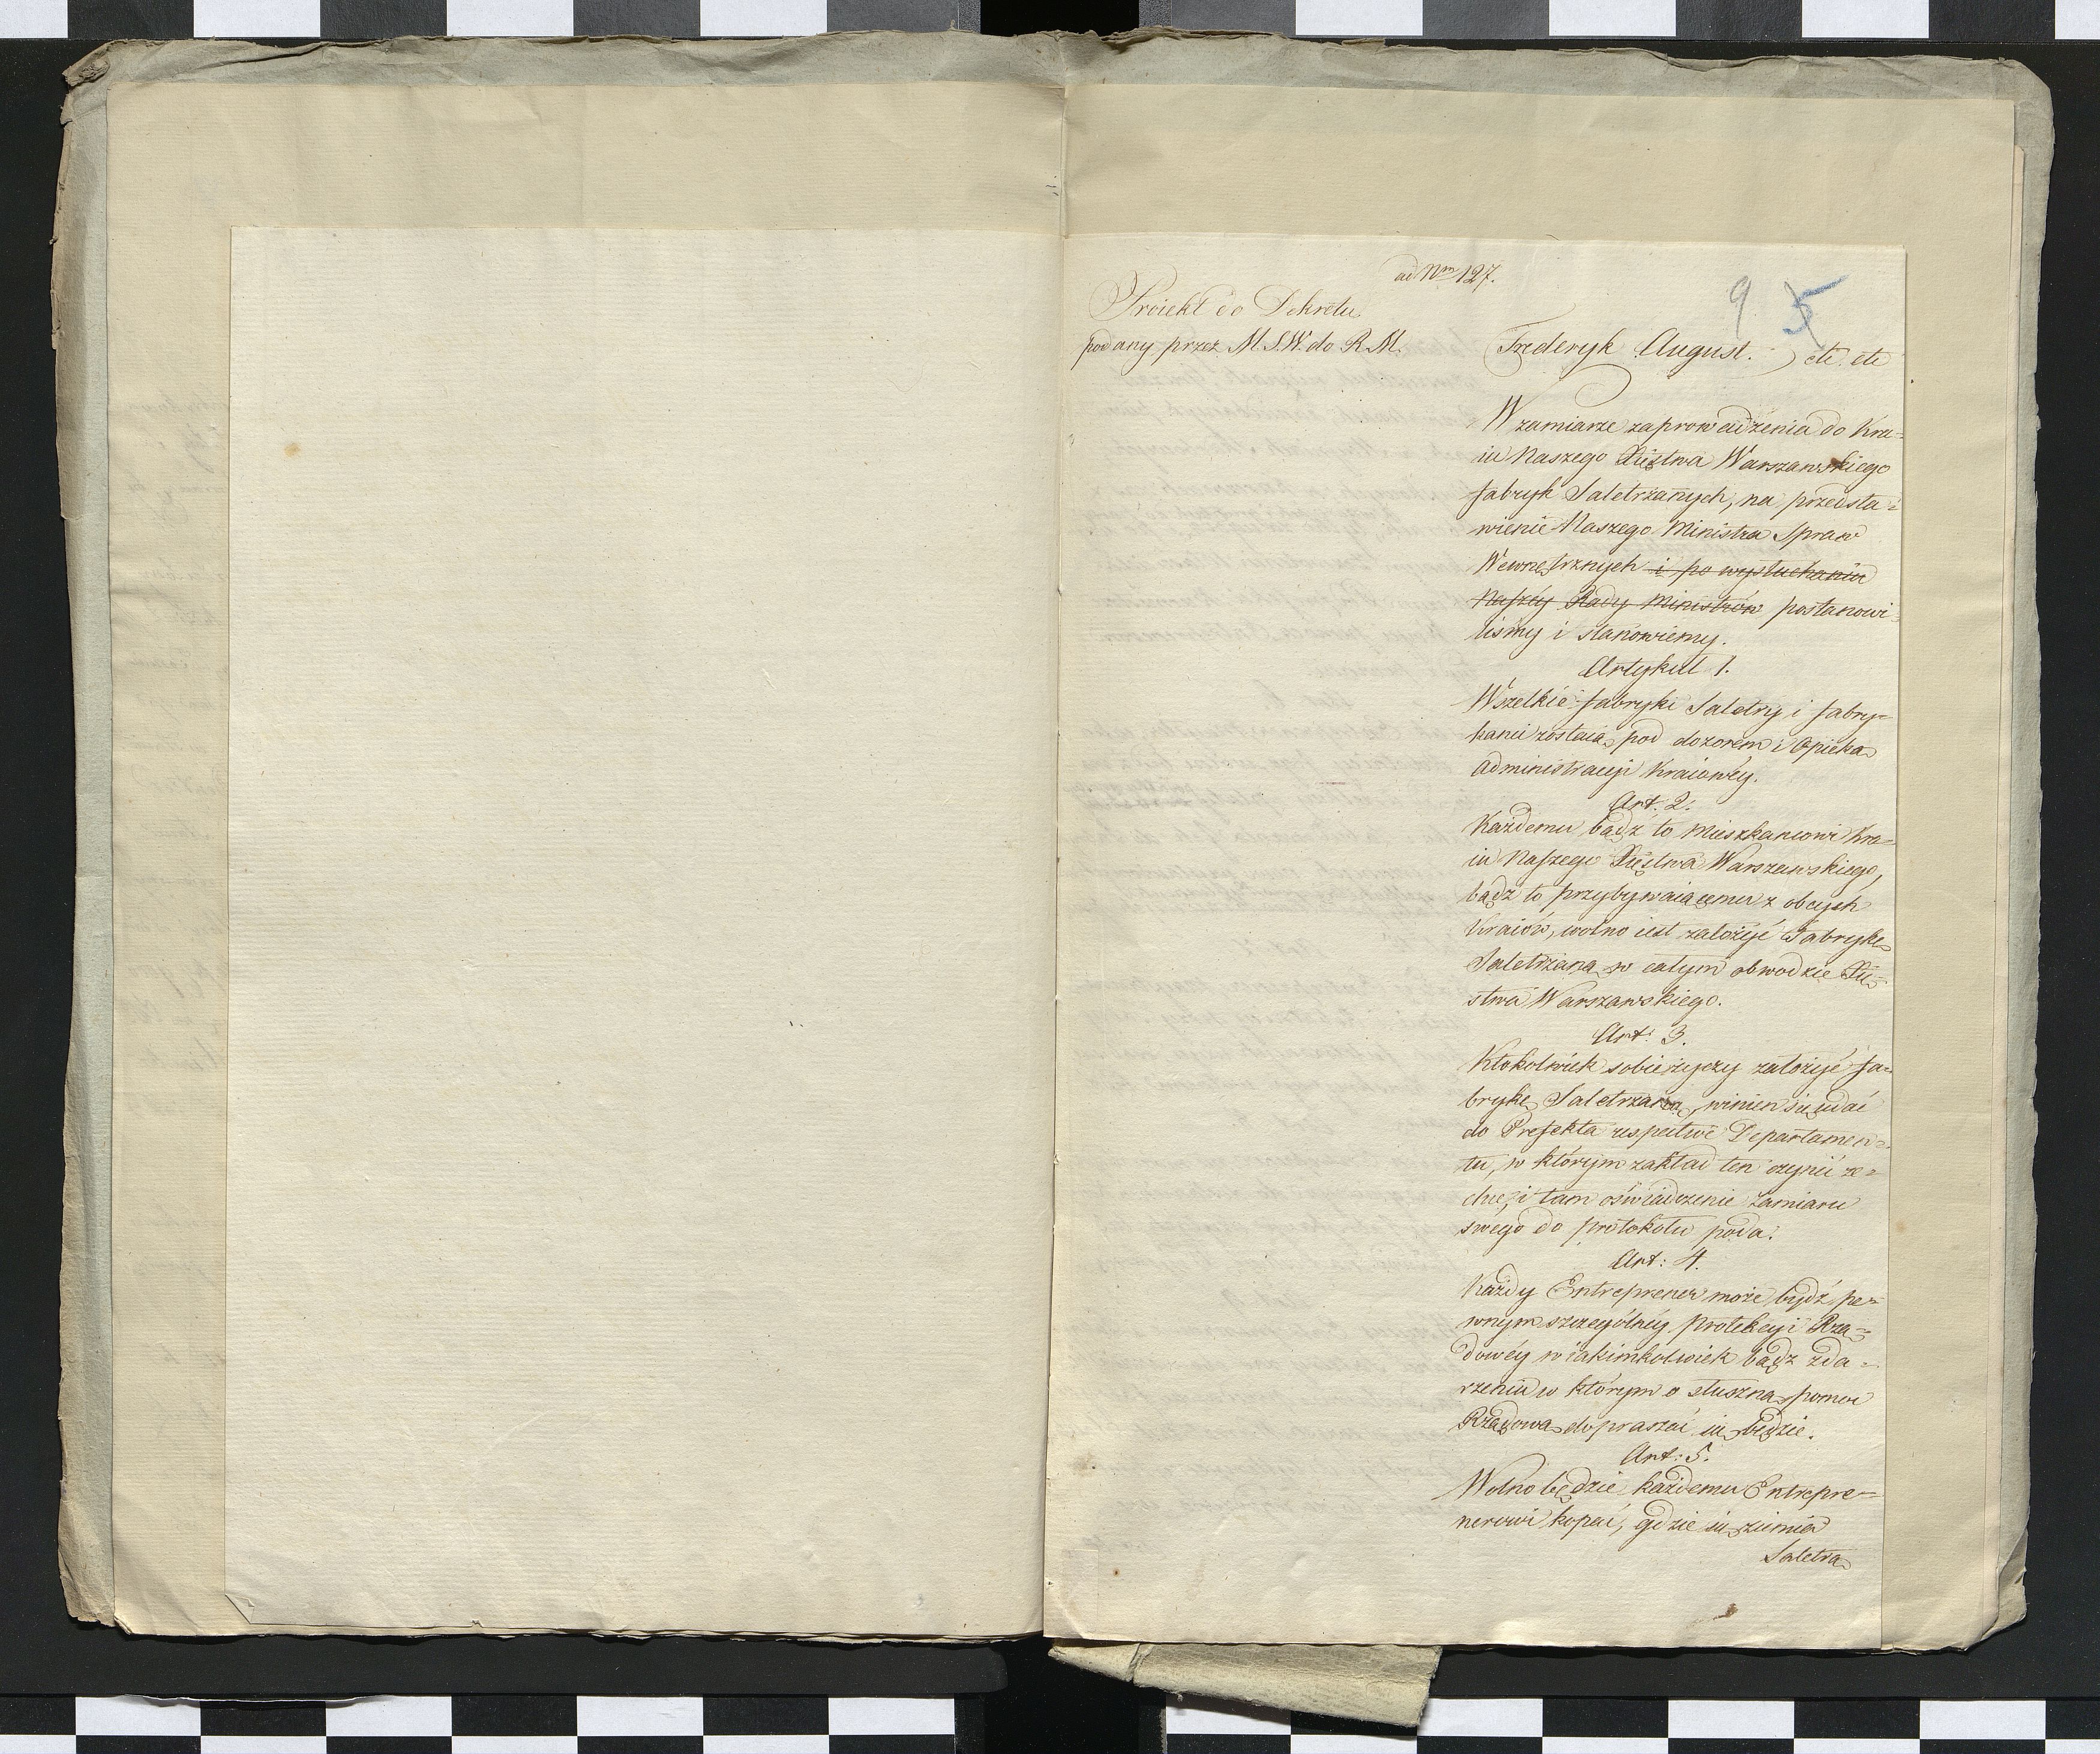 ad Nrm 127.
9 5
Proiekt do Dekretu
podany przez M.S.W. do R.M.
Frederyk August. etc. etc
W zamiarze zaprowadzenia do Kra=
iu Naszego Xięstwa Warszawskiego
fabryk Saletrzanych, na przedsta=
wienie Naszego Ministra Spraw
Wewnętrznych i po wysłuchaniu
Naszey Rady Ministrów postanowi=
liśmy i stanowiemy.
Artykuł 1.
Wszelkie fabryki Saletry i fabry=
kanci zostaią pod dozorem i Opieką
Administracyi Kraiowéy.
Art. 2.
Każdemu bądź to Mieszkancowi Kra=
iu Naszego Xięstwa Warszawskiego,
bądź to przybywaiącemu z obcych
Kraiów, wolno iest założyć Fabrykę
Saletrzaną w całym obwodzie Xię=
stwa Warszawskiego.
Art: 3.
Ktokolwiek sobie życzy założyć fa=
brykę Saletrzaną, winien się udać
do Prefekta respective Departamen=
tu, w którym zakład ten czynić ze=
chce, i tam oświadczenie zamiaru
swego do protokołu poda.
Art: 4.
Każdy Entreprener może bydź pe=
wnym szczególnéy protekcyi Rzą=
dowéy w iakimkolwiek bądź zda=
rzeniu w którym o słuszną pomoc
Rządową dopraszać się będzie.
Art: 5.
Wolno będzie każdemu Entrepre=
nerowi kopać, gdzie się ziemia
Saletrą